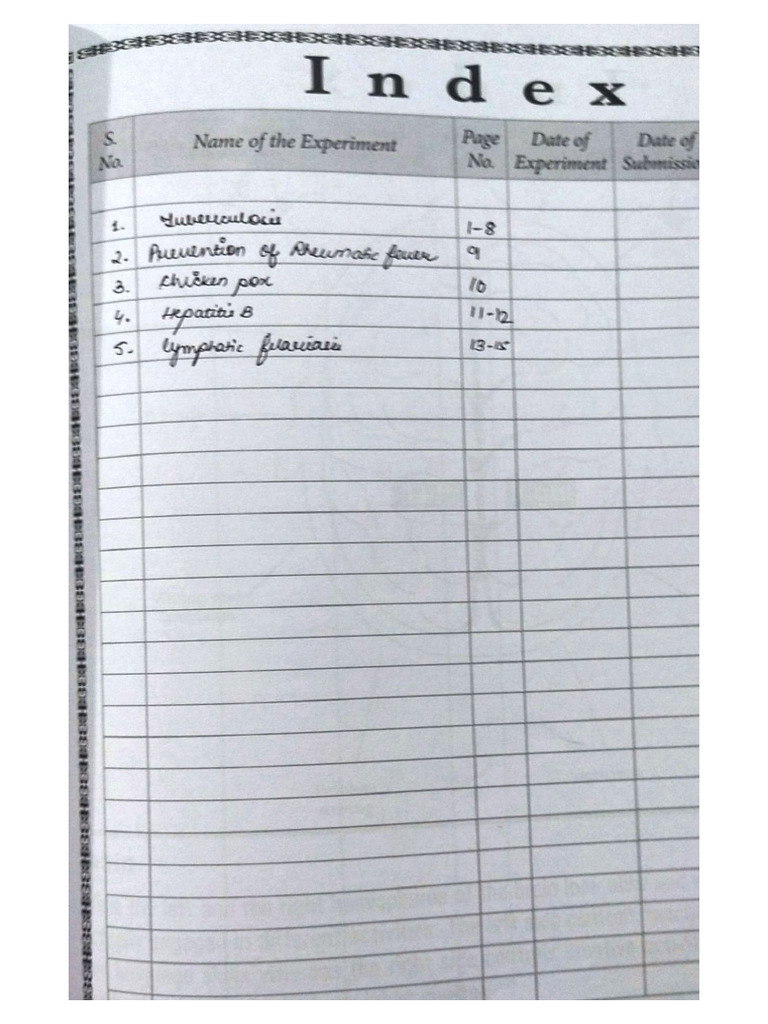 Index
S. No. Name of the Experiment Page No. Date of Experiment Date of Submissio
1. Tuberculosis 1-8
2. Prevention of Rheumatic fever 9
3. Chicken pox 10
4. Hepatitis B 11-12
5. lymphatic filariasis 13-15